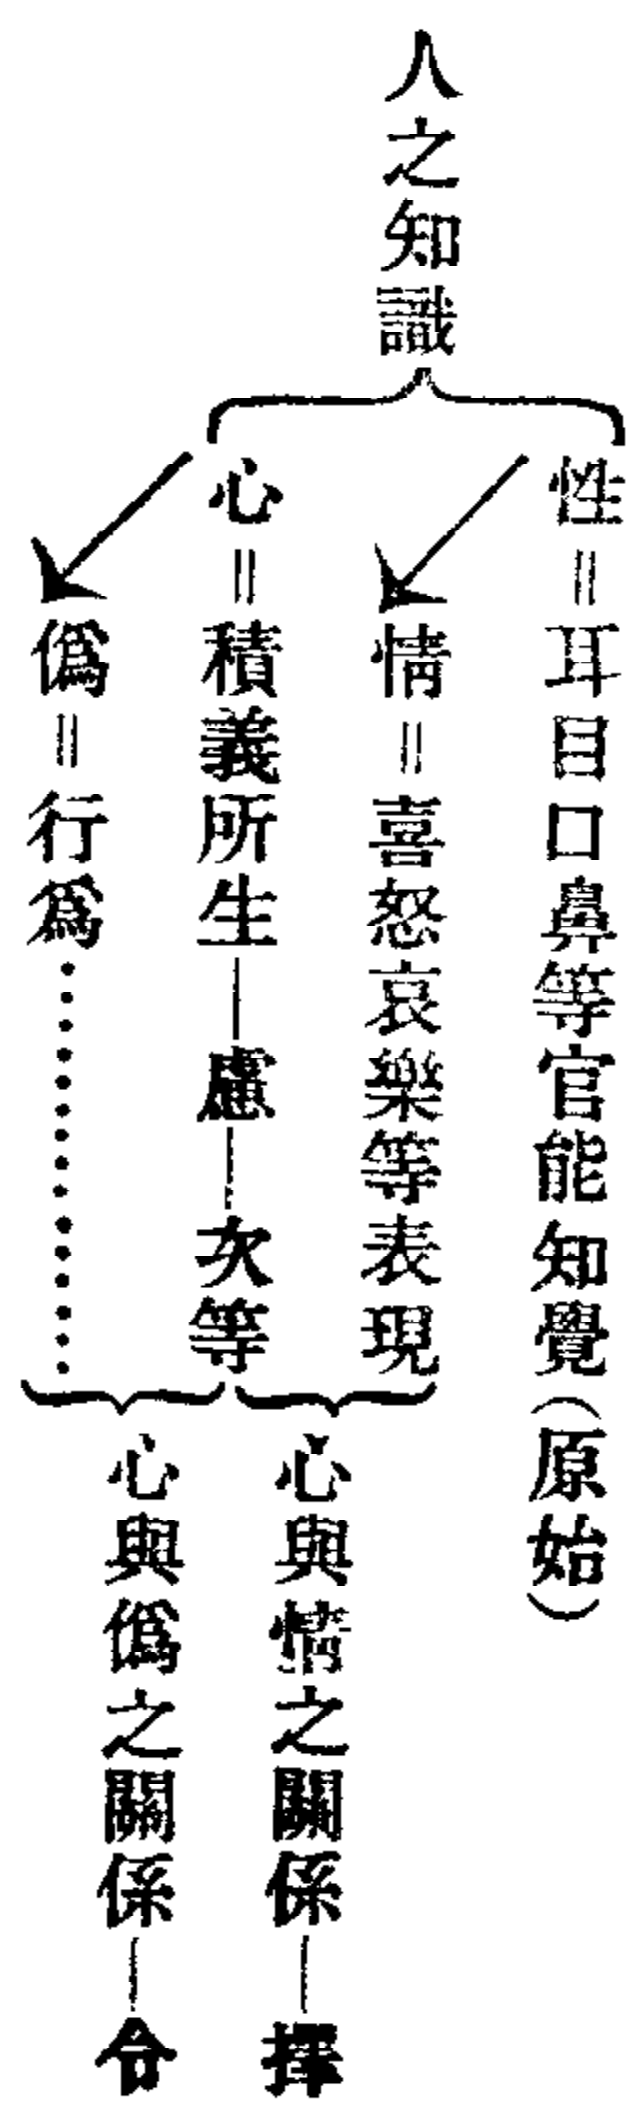 人之知識
性＝耳目口鼻等官能知覺（原始）
情＝喜怒哀樂等表現
心＝積義所生—慮—次等
僞＝行爲……………
心與情之關係—擇
心與僞之關係—令